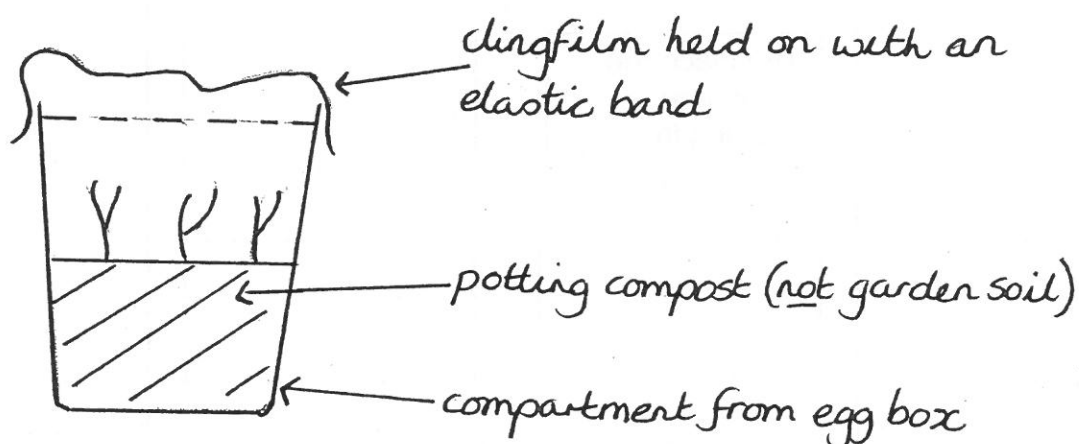 clingfilm held on with an
elastic band
potting compost (not garden soil)
compartment from egg box